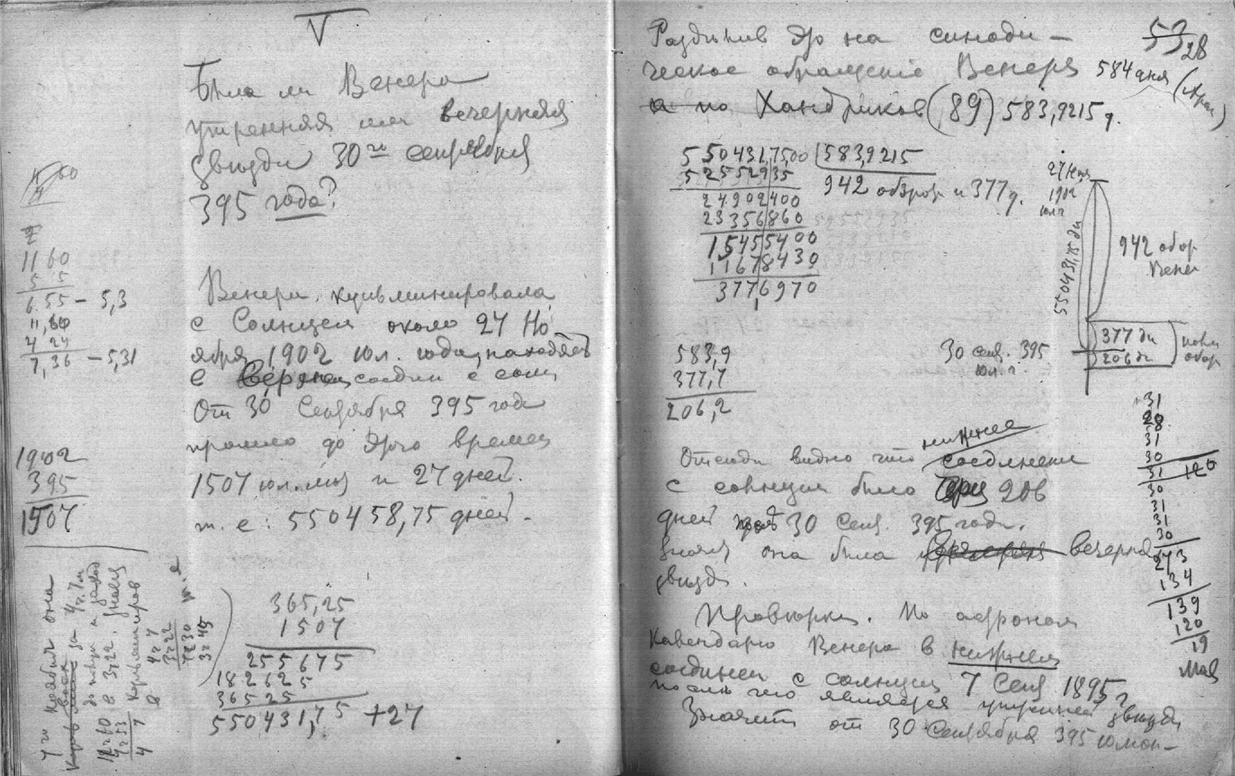 V
Была ли Венера
утренняя или вечерняя
звезда 30го сентября
395 года?
Венера кульминировала
с Солнцем около 24 Но
ября 1902 юл. года, находясь
в соедин с солн
От 30 Сентября 395 год
прошло до этого времен
1507 юл. лет и 27 дней.
т. е: 550458,75 дней.
365,25
1507
255675
182625
36525
550431,75 +27
1160
5 5
6.55 – 5,3
11,60
4 24
7,36 – 5,31
1902
395
1507
7го ноября она
53
28
Разделив это на синоди-
ческое обращение Венеры 584 дня
по Хандриков (89) 583,9215 д.
550431,7500 | 583,9215
5255 2935
942 оборот и 377 д.
24902400
23356860
15455400
11678430
3776970
583,9
377,7
206,2
27 Ноя
1902
юл г
550431,75 дн
942 обор
Вене
377 дн
206 дн
полн
обор
30 сен. 395
юл. г.
нижнее
Отсюда видно что соединение
с солнцем было 206
дней 30 Сен. 395 года.
Значит она была вечерняя
звезда.
31
28
31
30
31
30
31
31
30
273
134
139
120
19
Мая
Проверка. По астроном
календарю Венера в нижнем
соединен с солнцем 7 Сен 1895 г
после чего является утренней звездой
Значит от 30 Сентября 395 юлиан-